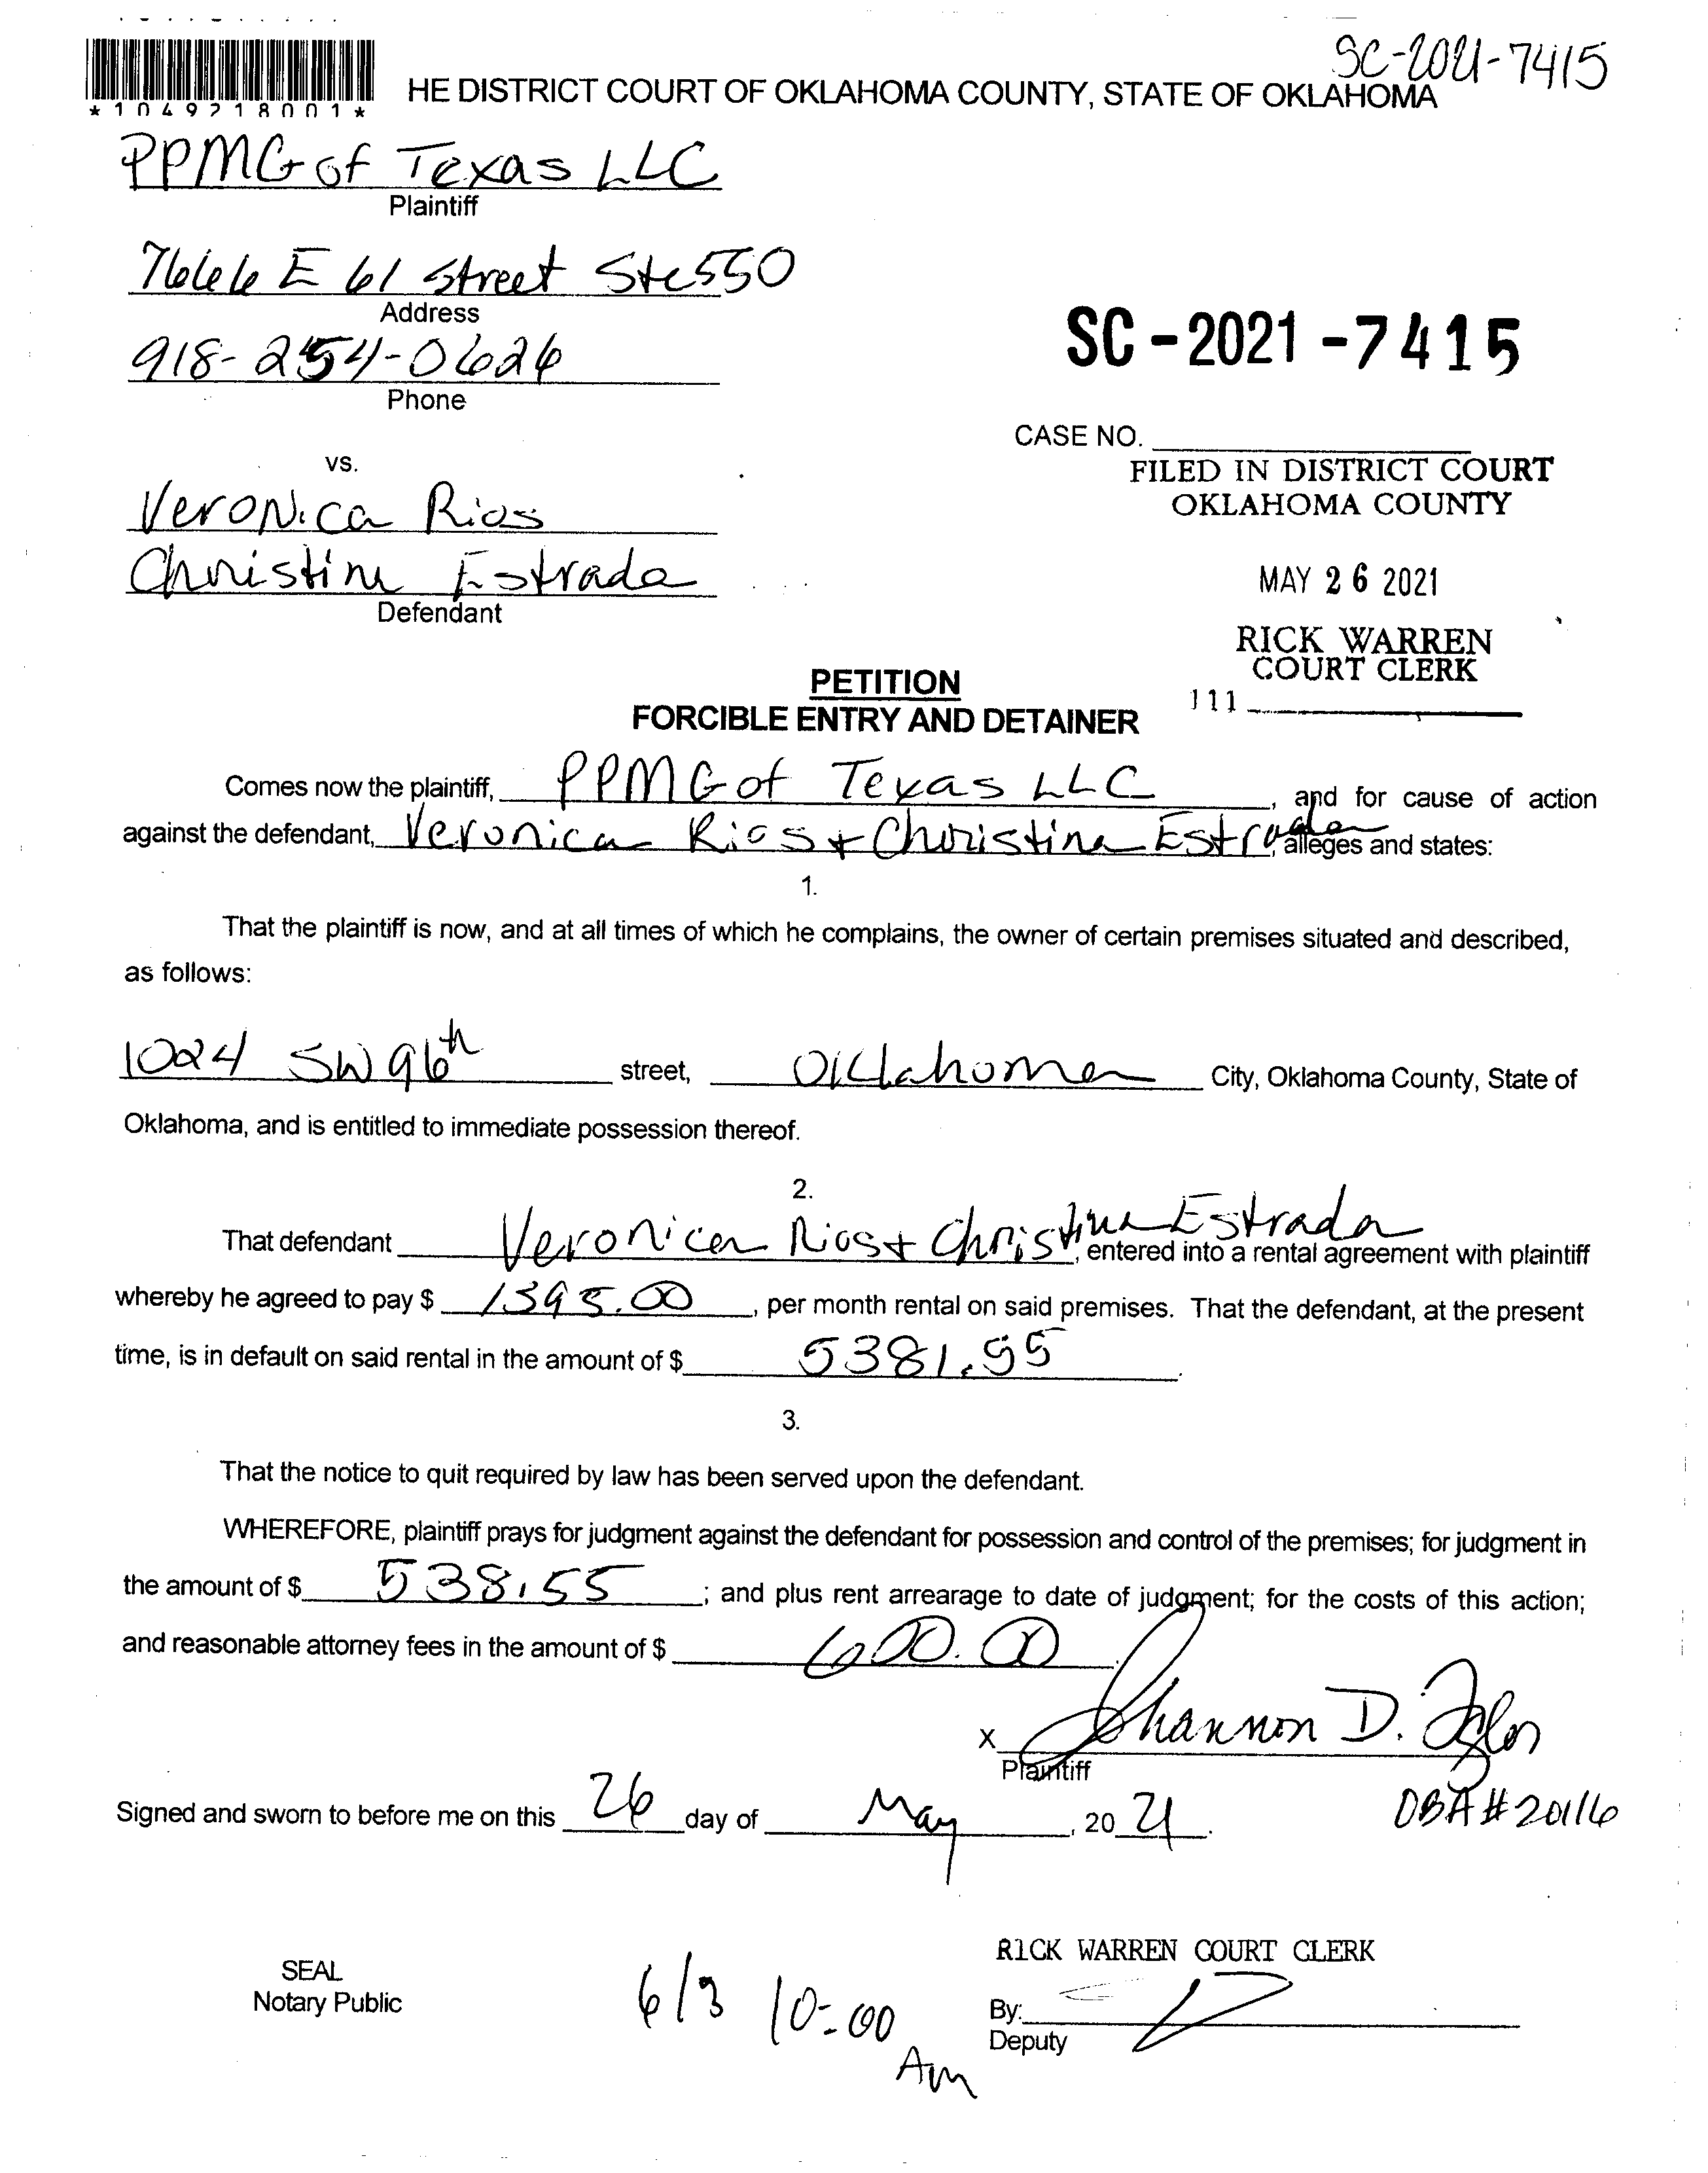 SC-2021-7415
*1049218001*
HE DISTRICT COURT OF OKLAHOMA COUNTY, STATE OF OKLAHOMA
PPMG of Texas LLC
Plaintiff
7666 E 61 Street Ste 550
Address
918-254-0626
Phone
SC-2021-7415
CASE NO.
vs.
FILED IN DISTRICT COURT
OKLAHOMA COUNTY
Veronica Rios
Christina Estrada
Defendant
MAY 26 2021
RICK WARREN
COURT CLERK
111
PETITION
FORCIBLE ENTRY AND DETAINER
Comes now the plaintiff, PPMG of Texas LLC, and for cause of action
against the defendant, Veronica Rios + Christina Estrada, alleges and states:
1.
That the plaintiff is now, and at all times of which he complains, the owner of certain premises situated and described,
as follows:
1024 SW 96th street, Oklahoma City, Oklahoma County, State of
Oklahoma, and is entitled to immediate possession thereof.
2.
That defendant Veronica Rios + Christina Estrada, entered into a rental agreement with plaintiff
whereby he agreed to pay $ 1395.00, per month rental on said premises. That the defendant, at the present
time, is in default on said rental in the amount of $ 5381.55.
3.
That the notice to quit required by law has been served upon the defendant.
WHEREFORE, plaintiff prays for judgment against the defendant for possession and control of the premises; for judgment in
the amount of $ 538.55; and plus rent arrearage to date of judgment; for the costs of this action;
and reasonable attorney fees in the amount of $ 600.00.
X Shannon D.
Plaintiff
OBA # 20116
Signed and sworn to before me on this 26 day of May, 2021.
RICK WARREN COURT CLERK
SEAL
Notary Public
6/3 10:00
Am
By:
Deputy